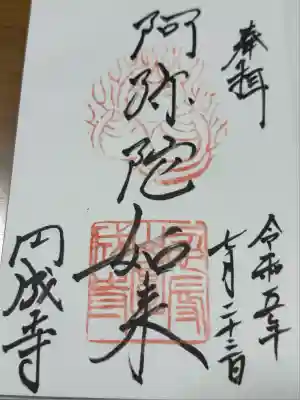 奉拝
令和五年
七月二十三日
阿弥陀如来
円成寺